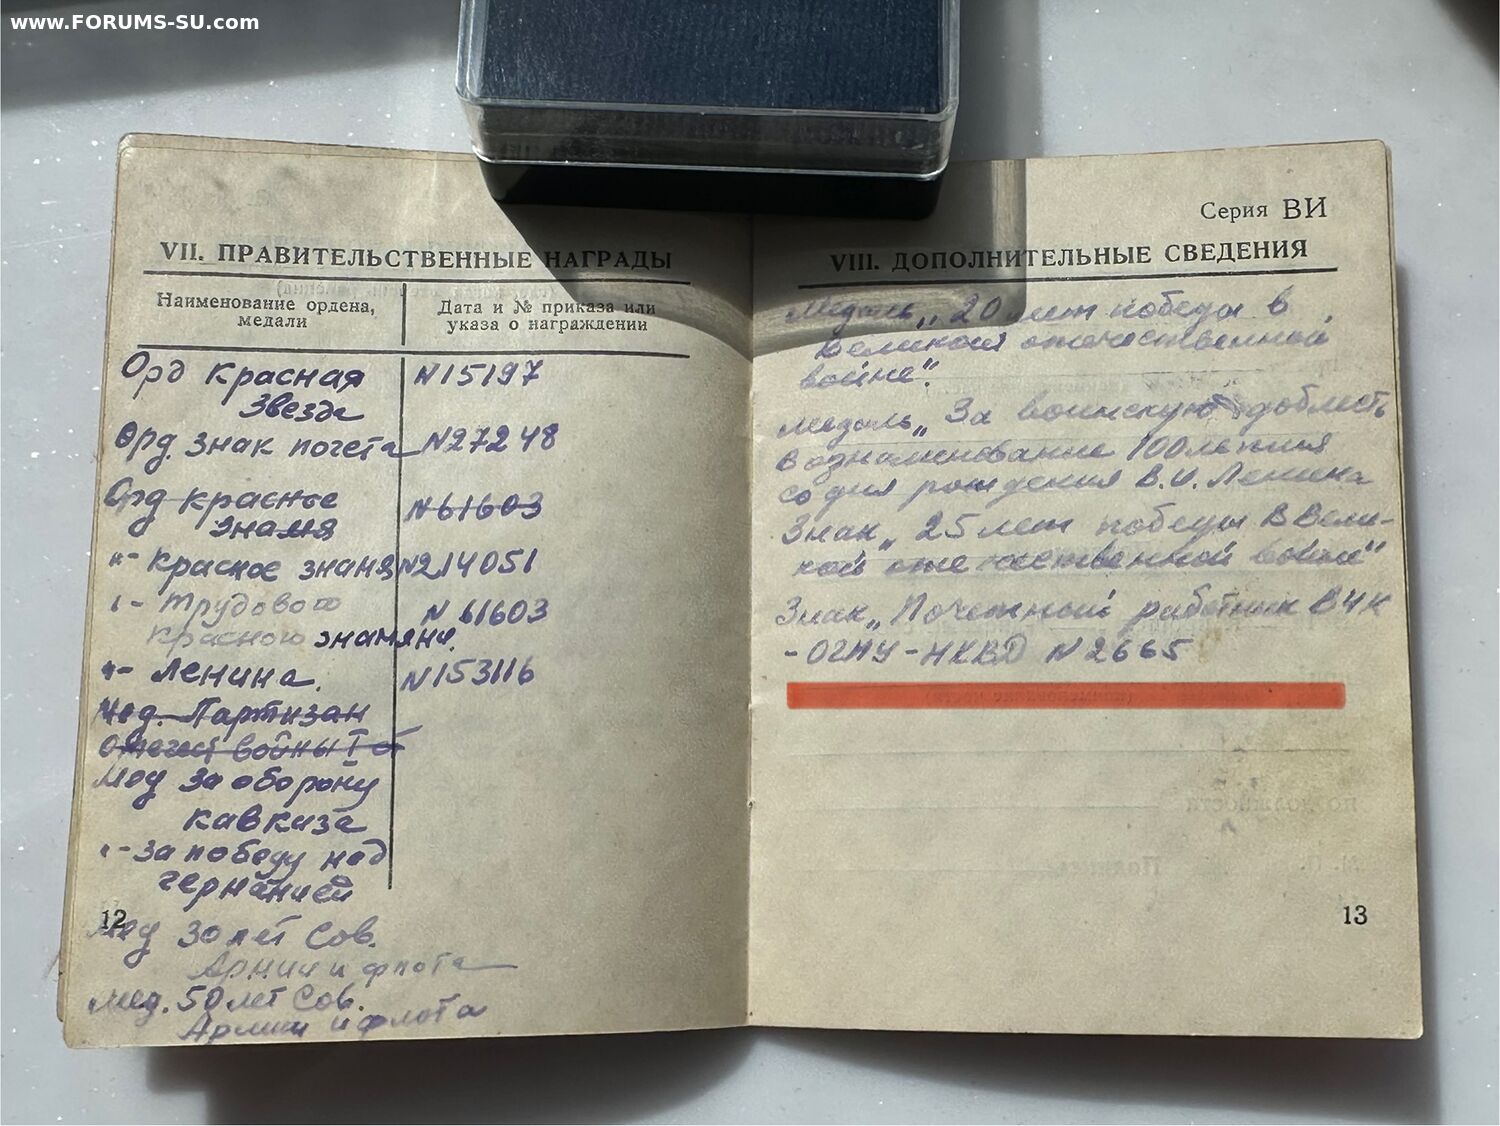 www.FORUMS-SU.com
VII. ПРАВИТЕЛЬСТВЕННЫЕ НАГРАДЫ
Наименование ордена, медали
Дата и № приказа или указа о награждении
Орд Красная N15197
Звезда
Орд. Знак почета N27248
Орд красное N61603
знамя
"- Красное знамя N214051
"- Трудового N 61603
красного знамяни.
"- Ленина. N153116
Мед. Партизан
Отечест войны I ст
Мед за оборону
кавказа
"- за победу над
германией
12
Мед 30 лет Сов.
Армии и флота
Мед. 50 лет Сов.
Армии и флота
Серия ВИ
VIII. ДОПОЛНИТЕЛЬНЫЕ СВЕДЕНИЯ
Медаль „20 лет победы в
Великой отечественной
войне".
Медаль „За воинскую доблесть
В ознаменование 100летия
со дня рождения В.И. Ленина
Знак „25 лет победы В Вели-
кой отечественной войне"
Знак „Почетный работник ВЧК
-ОГПУ-НКВД N2665
13